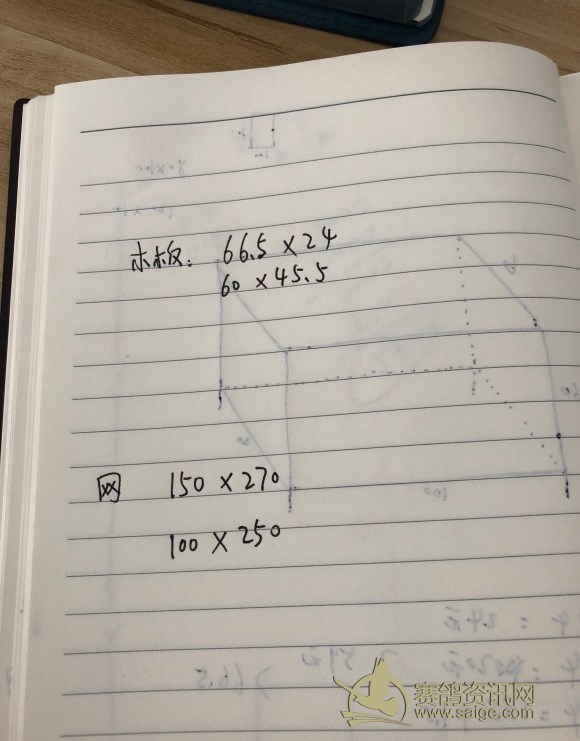 木板: 66.5 × 24
60 × 45.5
网 150 × 270
100 × 250
赛鸽资讯网
www.saige.com